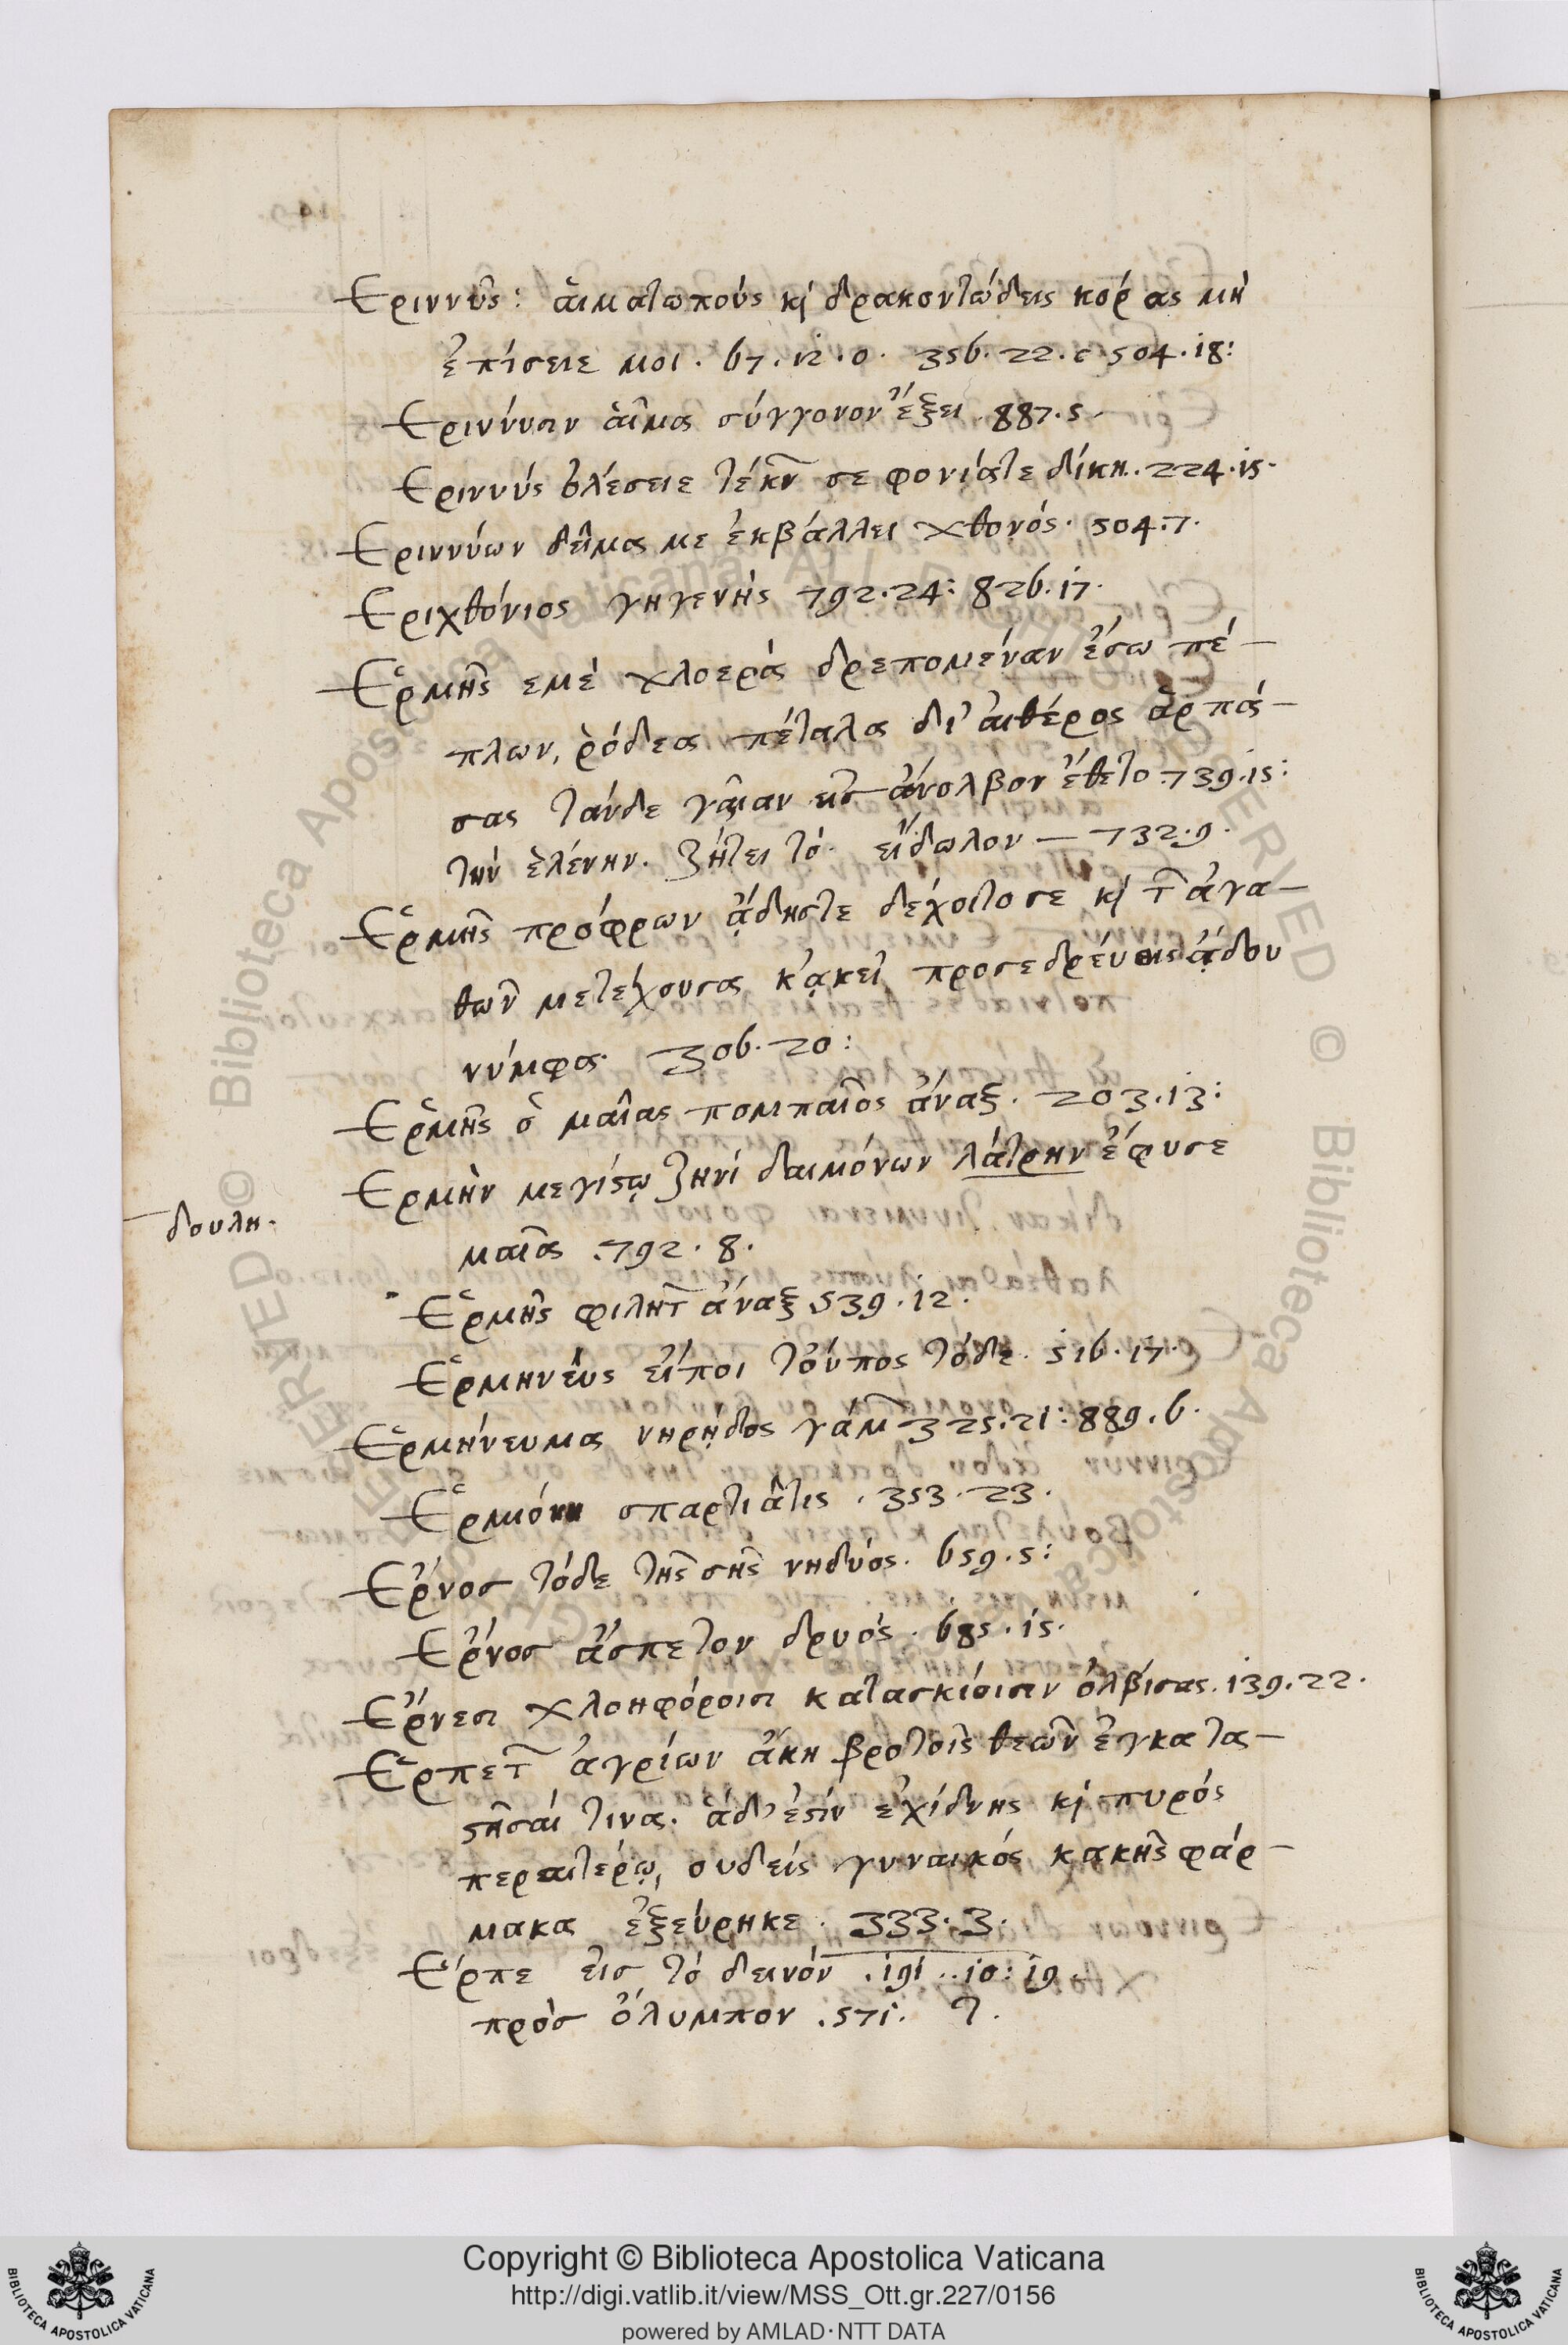 Εριννῦς: ἁιματωπούς κ δρακοντώδεις κόρας μή
ἐπίσειε μοι. 67. 12. 0. 356. 22. c 504. 18:
Εριννύσιν ἁῖμα σύγγονον ἕξει. 887. 5.
Εριννύς ὀλέσειε τέκν σε φονίατε δίκη. 224. 15.
Εριννύων δεῖμα με ἐκβάλλει χθονός. 504. 7.
Εριχθόνιος γηγενής 792. 24: 826. 17.
Ἑρμῆς εμέ χλοερά δρεπομέναν ἔσω πέ—
πλων, ῥόδεα πέταλα δι' ἀιθέρος ἁρπά—
σας τάνδε γᾶιαν εἰσ ἄνολβον ἔθετο. 739. 15:
τήν ἑλένην. ζήτει τό εἴδωλον — 732. 9.
Ἑρμῆς πρόφρων ᾅδηστε δέχοιτο σε κ τ ἀγα—
θῶν μετέχουσα κᾀκεῖ προσεδρεύοις ᾅδου
νύμφα. 306. 20:
Ἑρμῆς ὁ μαῖας πομπαῖος ἄναξ. 203. 13:
Ερμὴν μεγίστῳ ζηνί δαιμόνων λάτρην ἔφυσε
δουλη.
μαῖα. 792. 8.
Ἑρμῆς φιλητ ἄναξ 539. 12.
Ἑρμηνέυς εἴποι τοὖπος τόδε. 516. 17.
Ἑρμήνευμα νηρῄδος γάμ 325. 21: 889. 6.
Ἑρμιόνη σπαρτιᾶτις. 353. 23.
Ἔρνοσ τόδε τῆς σῆς νηδύος. 659. 5:
Ἔρνοσ ἄσπετον δρυός. 685. 15.
Ἔρνεσι χλοηφόροισι κατασκίοισιν ὀλβίσας. 139. 22.
Ἑρπετ ἀγρίων ἄκη βροτοῖς θεῶν ἐγκατα—
στῆσαί τινα. ἁ δ' ἐστίν εχίδνης κ πυρός
περαιτέρω, ουδείς γυναικός κακῆς φάρ—
μακα ἐξεύρηκε. 333. 3.
Ἕρπε ἐισ τό δεινόν. 191.. 10: 19.
πρόσ ὄλυμπον. 571. 7.
Copyright © Biblioteca Apostolica Vaticana
http://digi.vatlib.it/view/MSS_Ott.gr.227/0156
powered by AMLAD·NTT DATA